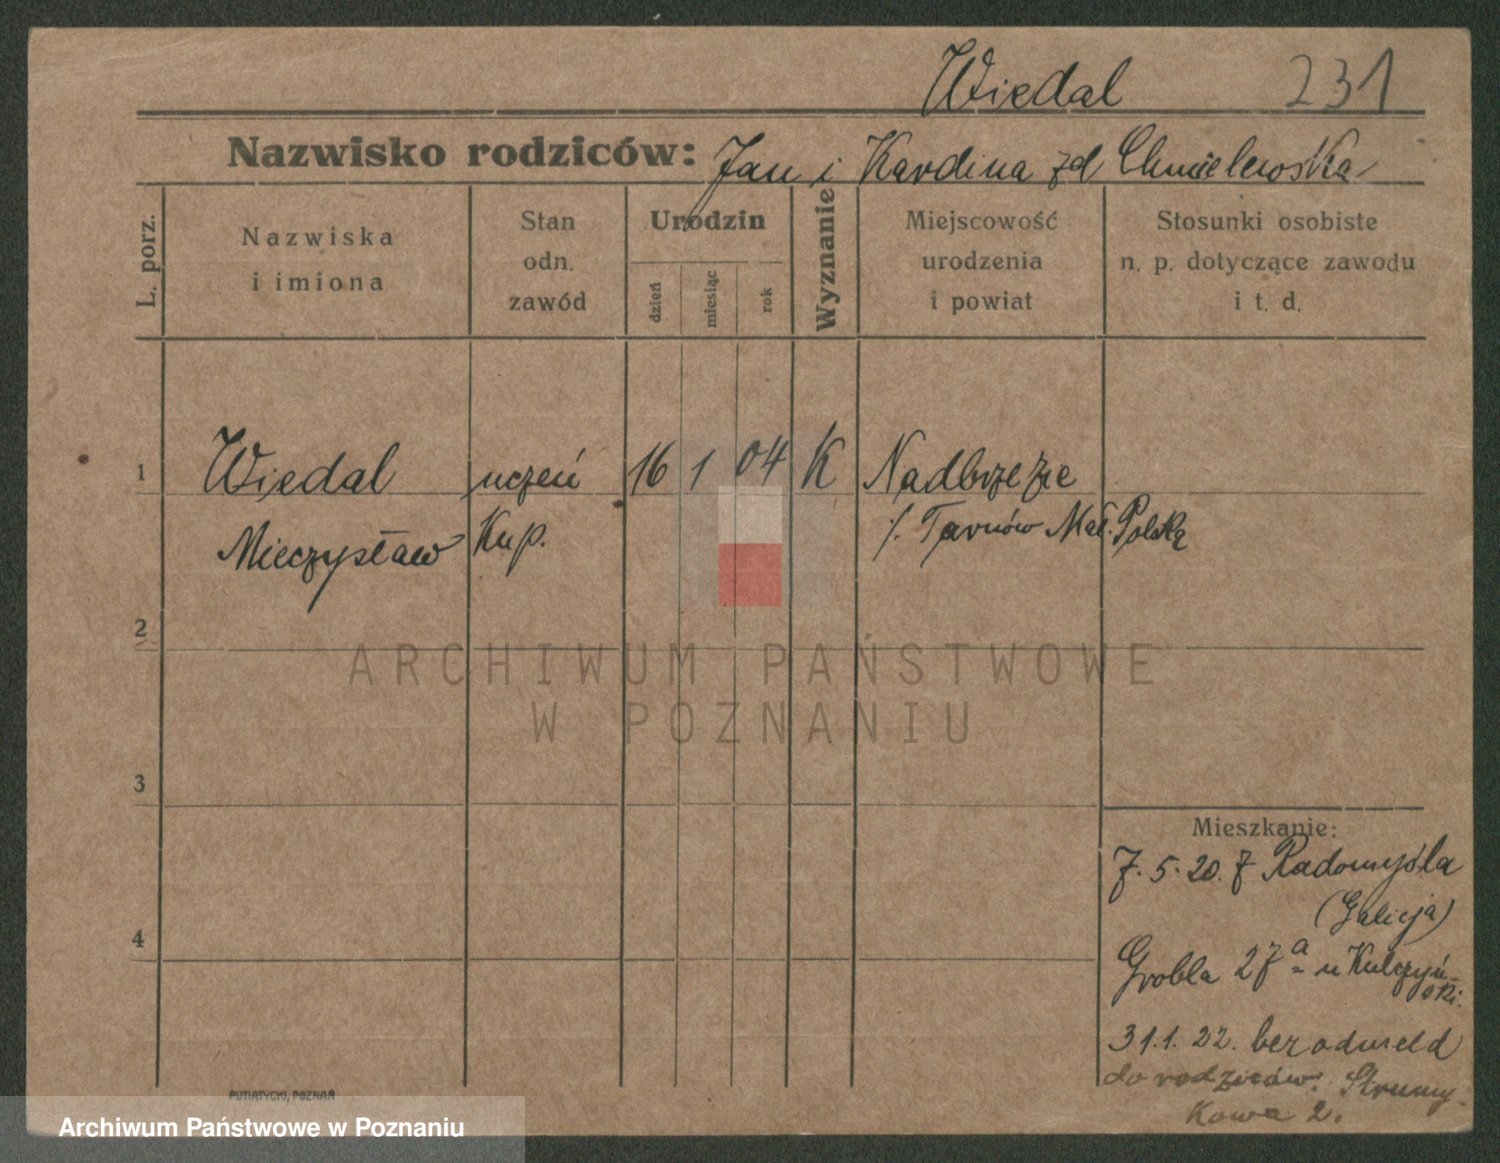 Wiedal 231
Nazwisko rodziców: Jan i Kardina zd Chmielewska
L. porz.
Nazwiska
i imiona
Stan
odn.
zawód
Urodzin
dzień
miesiąc
rok
Wyznanie
Miejscowość
urodzenia
i powiat
Stosunki osobiste
n. p. dotyczące zawodu
i t. d.
1 Wiedal uczeń 16 1 04 K Nadbrzezie
Mieczysław Kup. /. Tarnów Mał. Polska
2
ARCHIWUM PAŃSTWOWE
W POZNANIU
3
Mieszkanie:
7. 5. 20. z Radomyśla
(Galicja)
4
Grobla 27a u Kulczyń-
ski.
31.1.22. bez odmeld
do rodziców. Strumy-
kowa 2.
PUTIATYCKI, POZNAŃ
Archiwum Państwowe w Poznaniu